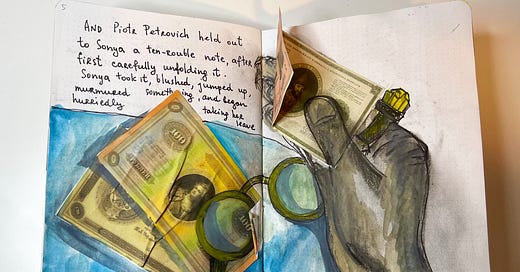 5
AND Piotr Petrovich held out
to Sonya a ten-rouble note, after
first carefully unfolding it.
Sonya took it, blushed, jumped up,
murmured something, and began
hurriedly taking her
leave
100
100